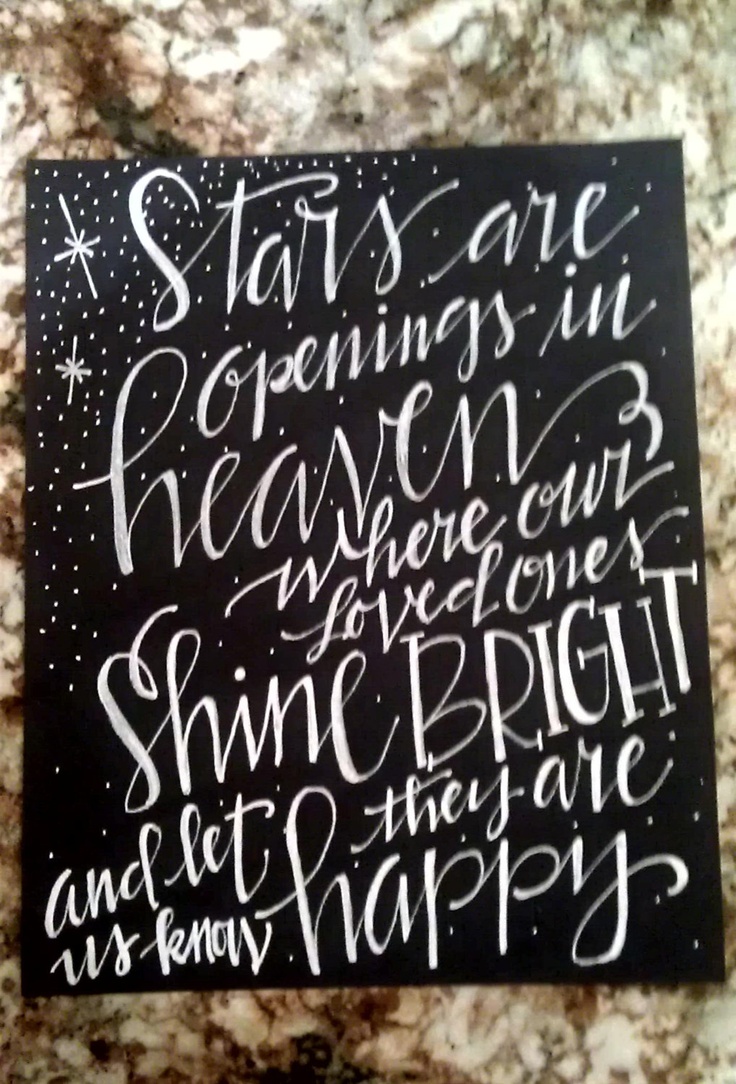 Stars are
openings in
heaven
where our
loved ones
Shine BRIGHT
and let they are
us know happy